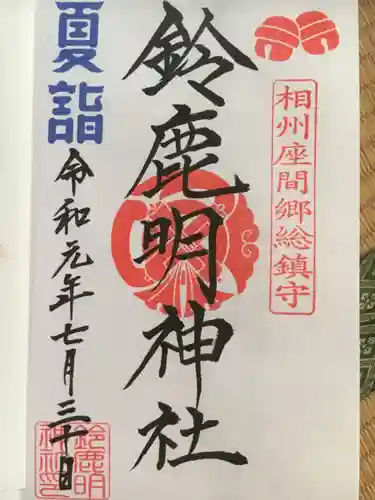 相州座間郷総鎮守
鈴鹿明神社
夏詣
令和元年七月三十日
鈴鹿明
神社印